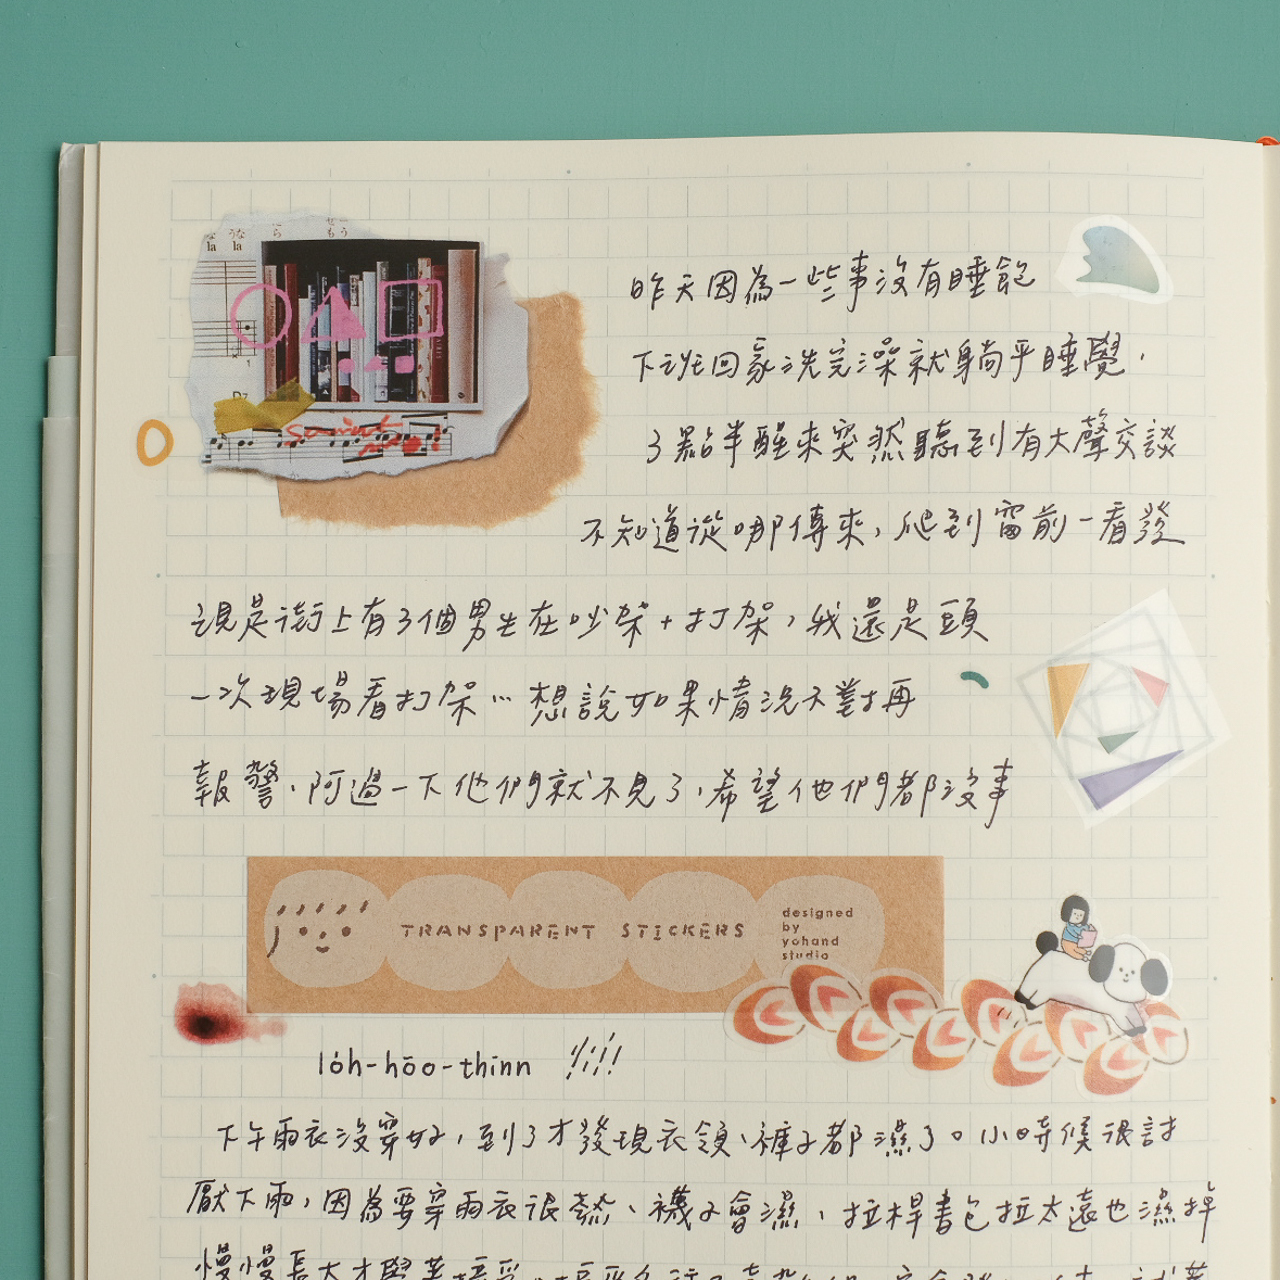 な うな ら せー もう
la la
D7
昨天因為一些事沒有睡飽
下班回家洗完澡就躺平睡覺,
3點半醒來突然聽到有大聲交談
不知道從哪傳來,爬到窗前一看發
現是街上有3個男生在吵架+打架,我還是頭
一次現場看打架…想說如果情況不對再
報警、阿過一下他們就不見了,希望他們都沒事
TRANSPARENT STICKERS
designed
by
yohand
studio
lo̍h-hōo-thinn !!!!!
下午雨衣沒穿好,到了才發現衣領、褲子都濕了。小時候很討
厭下雨,因為要穿雨衣很熱、襪子會濕、拉桿書包拉太遠也濕掉
慢慢長大才學著接受